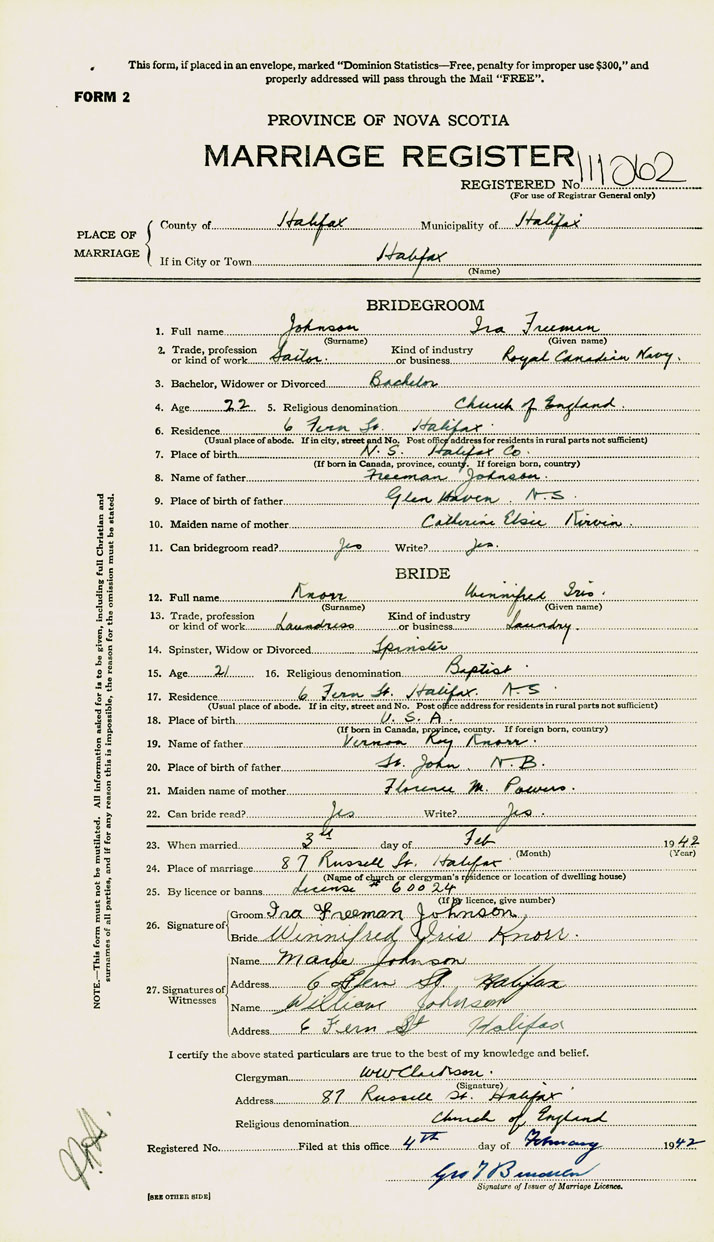 This form, if placed in an envelope, marked "Dominion Statistics—Free, penalty for improper use $300," and
properly addressed will pass through the Mail "FREE".
FORM 2
PROVINCE OF NOVA SCOTIA
MARRIAGE REGISTER
REGISTERED No. 111062
(For use of Registrar General only)
PLACE OF MARRIAGE
County of Halifax Municipality of Halifax
If in City or Town Halifax
(Name)
BRIDEGROOM
1. Full name Johnson Ira Freeman
(Surname) (Given name)
2. Trade, profession or kind of work Sailor. Kind of industry or business Royal Canadian Navy.
3. Bachelor, Widower or Divorced Bachelor
4. Age 22 5. Religious denomination Church of England.
6. Residence 6 Fern St. Halifax.
(Usual place of abode. If in city, street and No. Post office address for residents in rural parts not sufficient)
7. Place of birth N. S. Halifax Co.
(If born in Canada, province, county. If foreign born, country)
8. Name of father Freeman Johnson.
9. Place of birth of father Glen Haven. N.S.
10. Maiden name of mother Catherine Elsie Kirvin.
11. Can bridegroom read? Yes Write? Yes.
BRIDE
12. Full name Knorr Winnifred Iris.
(Surname) (Given name)
13. Trade, profession or kind of work Laundress Kind of industry or business Laundry.
14. Spinster, Widow or Divorced Spinster
15. Age 21 16. Religious denomination Baptist.
17. Residence 6 Fern St. Halifax. N.S
(Usual place of abode. If in city, street and No. Post office address for residents in rural parts not sufficient)
18. Place of birth U. S. A.
(If born in Canada, province, county. If foreign born, country)
19. Name of father Vernon Roy Knorr.
20. Place of birth of father St. John. N.B.
21. Maiden name of mother Florence M. Powers.
22. Can bride read? Yes Write? Yes.
23. When married 3rd day of Feb 1942
(Month) (Year)
24. Place of marriage 87 Russell St. Halifax
(Name of church or clergyman's residence or location of dwelling house)
25. By licence or banns License # 60024
(If by licence, give number)
26. Signature of Groom Ira Freeman Johnson
Bride Winnifred Iris Knorr.
27. Signatures of Witnesses
Name Marie Johnson
Address 6 Fern St Halifax
Name William Johnson
Address 6 Fern St Halifax
I certify the above stated particulars are true to the best of my knowledge and belief.
Clergyman WW Clarkson.
(Signature)
Address 87 Russell St. Halifax
Religious denomination Church of England
Registered No. Filed at this office 4th day of February 1942
Signature of Issuer of Marriage Licence.
[SEE OTHER SIDE]
NOTE.—This form must not be mutilated. All information asked for is to be given, including full Christian and
surnames of all parties, and if for any reason this is impossible, the reason for the omission must be stated.